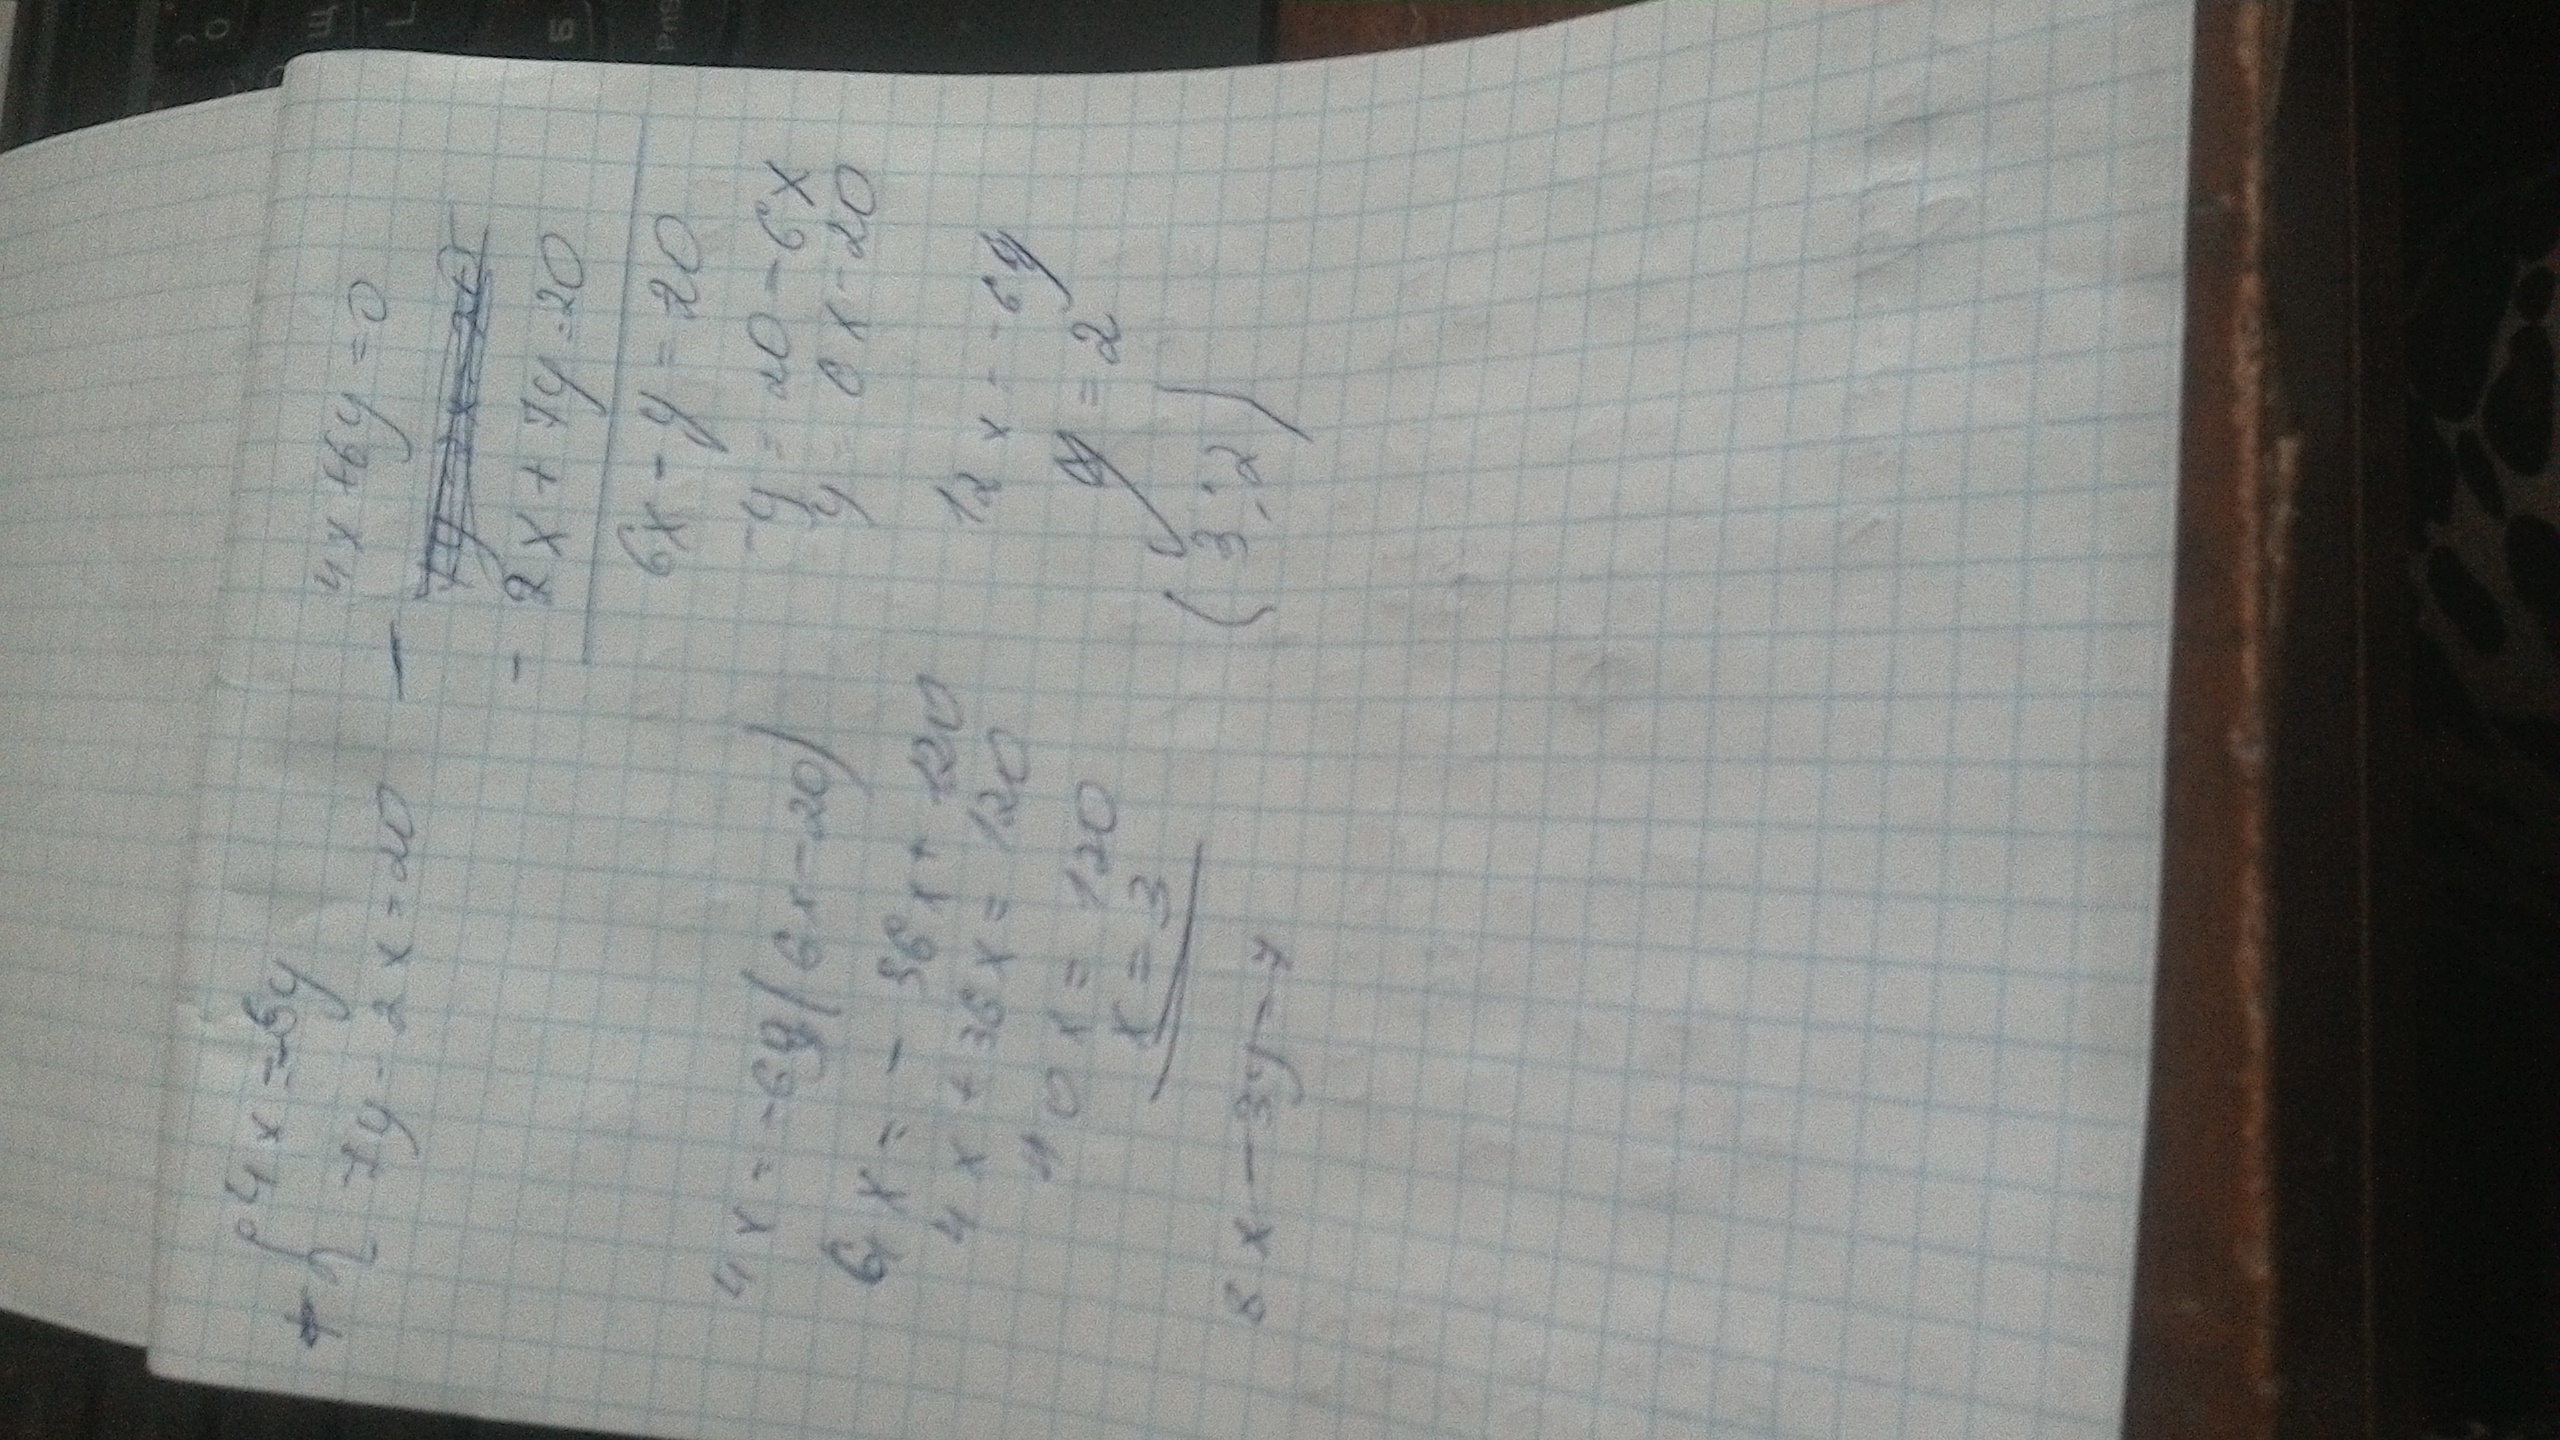 4x = -6y
7y - 2x = 20
4x + 6y = 0
- 2x + 7y = 20
6x - y = 20
-y = 20 - 6x
y = 6x - 20
4x = -6(6x - 20)
6x = - 36x + 120
4x + 36x = 120
40x = 120
x = 3
12x = -6y
y = 2
(3; 2)
8x - 3y - 4